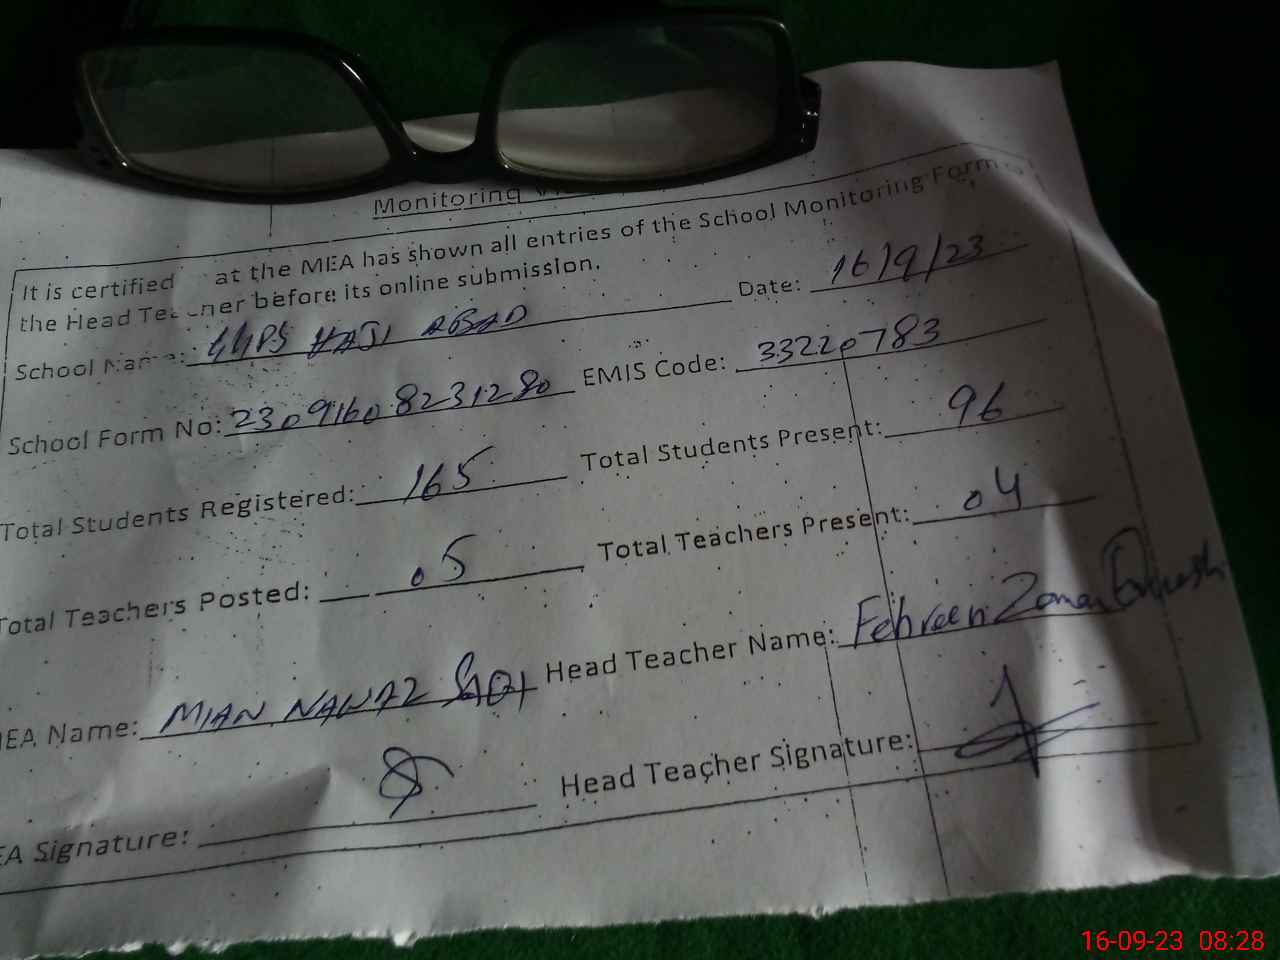 Monitoring
It is certified at the MEA has shown all entries of the School Monitoring Form
the Head Teacher before its online submission.
Date: 16/9/23
School Name: GGPS HAJI ABAD
School Form No: 23091608231280 EMIS Code: 33220783
Total Students Registered: 165 Total Students Present: 96
Total Teachers Posted: 05 Total Teachers Present: 04
MEA Name: MIAN NAWAZ Head Teacher Name: Zaman
EA Signature: Head Teacher Signature:
16-09-23 08:28